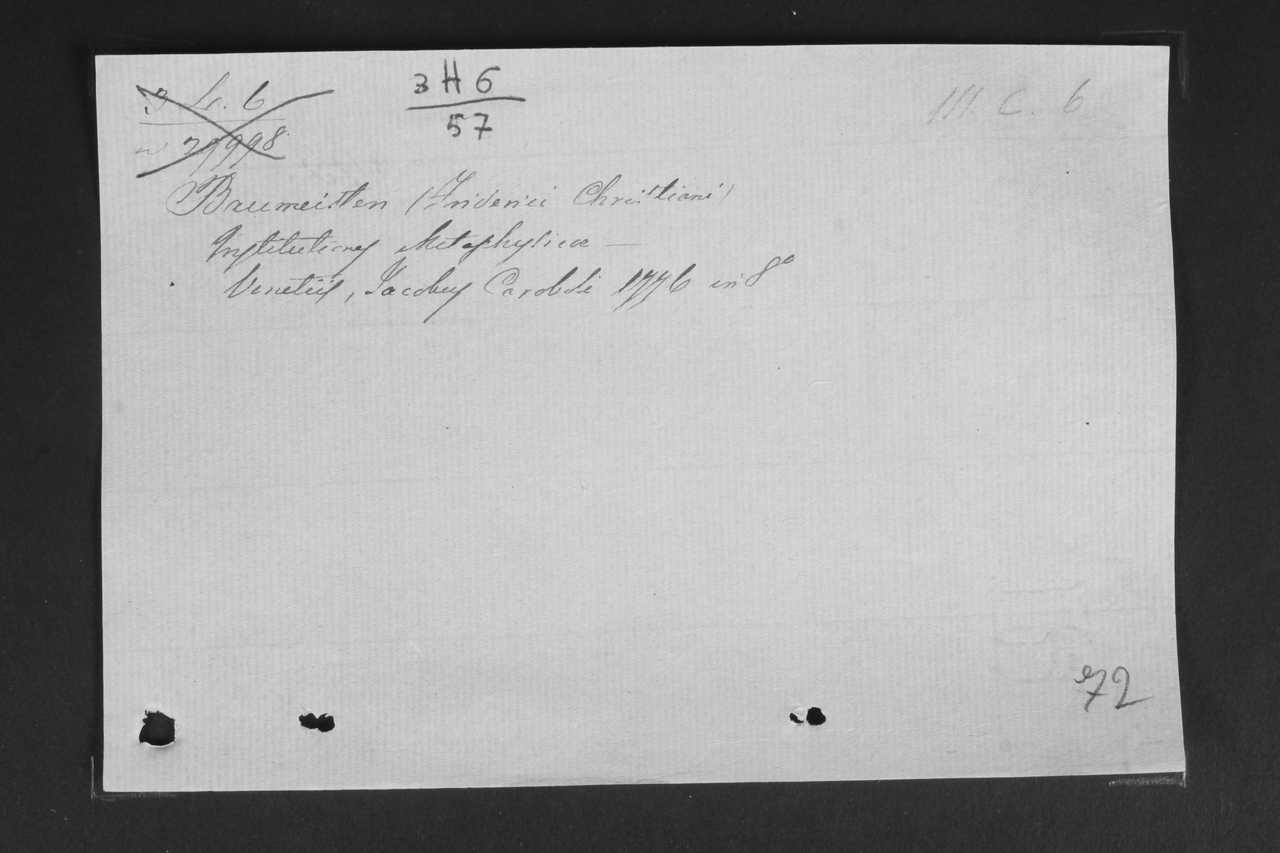 3 Lc. 6
n 29998
3 H 6
57
III. C. 6
Baumeister (Friderici Christiani)
Institutiones Metaphysicæ —
Venetiis, Jacobus Caroboli 1776 in 8º
72